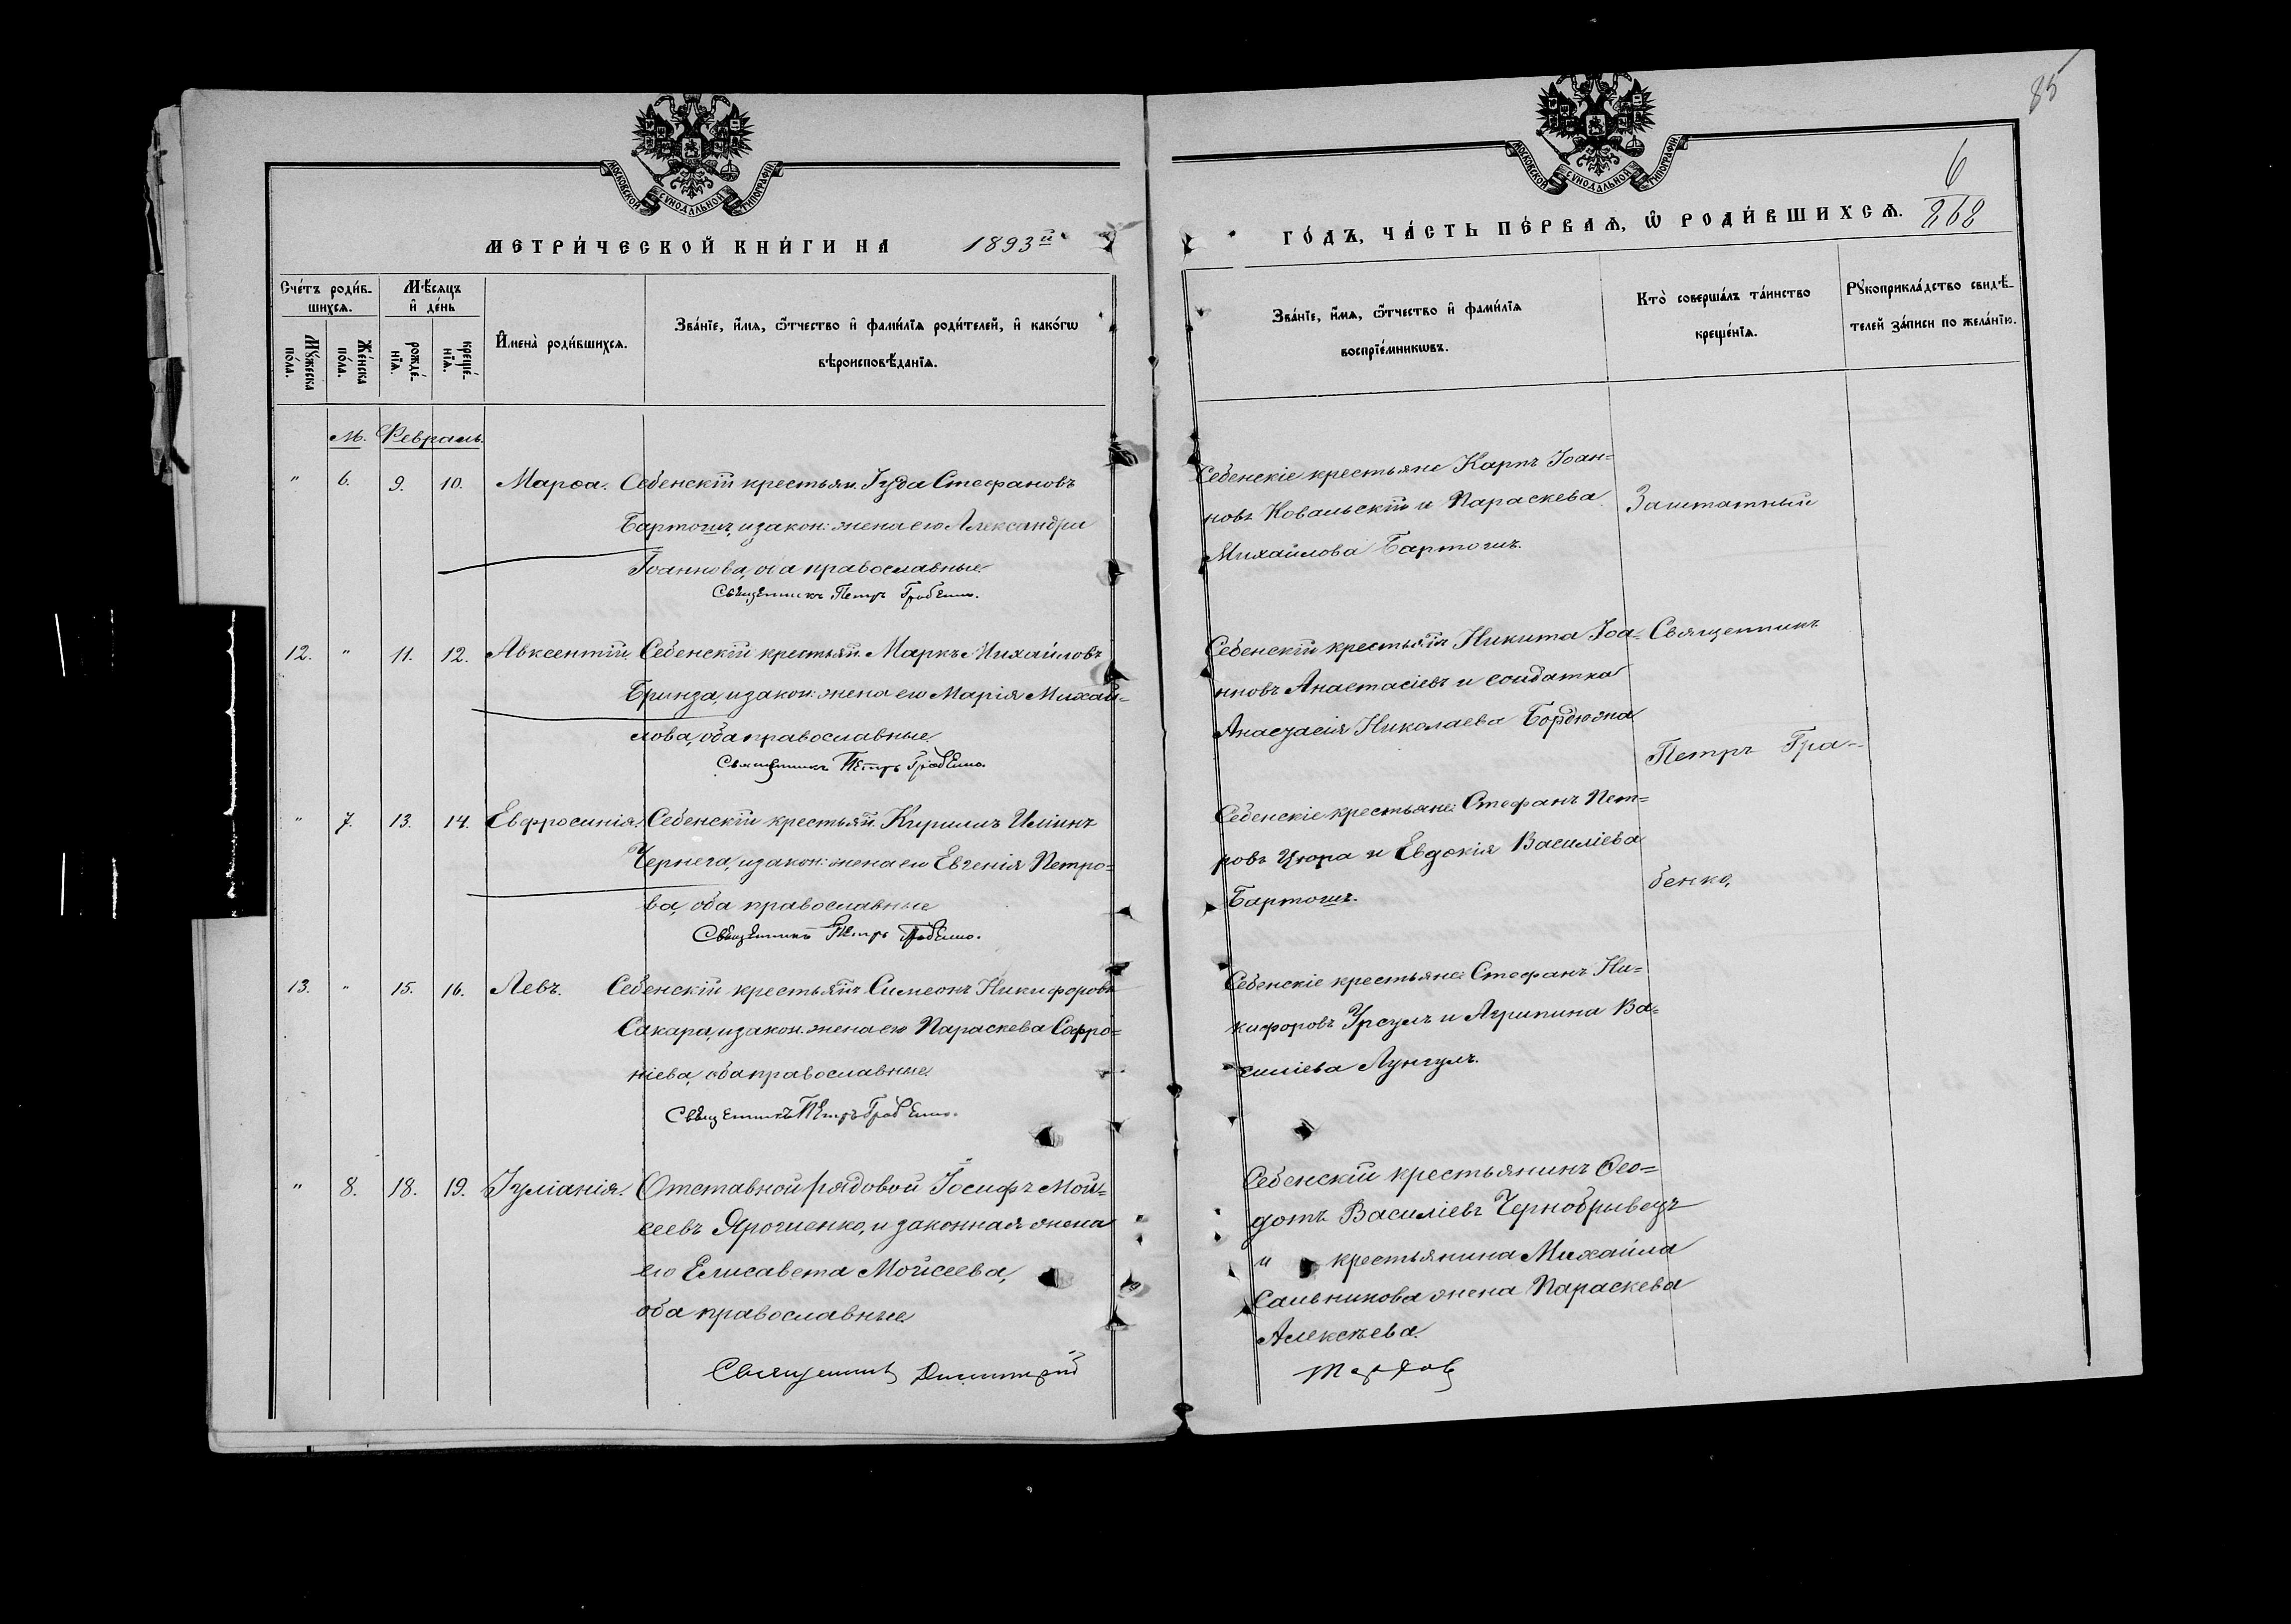 85
МОСКОВСКОЙ СѴНОДАЛЬНОЙ ТИПОГРАФІИ
МОСКОВСКОЙ СѴНОДАЛЬНОЙ ТИПОГРАФІИ
6
268
МЕТРИ́ЧЕСКОЙ КНИ́ГИ НА 1893й
ГО́ДЪ, ЧА́СТЬ ПЕ́РВАѦ, Ѡ҆ РОДИ́ВШИХСѦ.
Сче́тъ роди́в-
шихсѧ.
Мꙋ́жеска
по́ла.
Же́нска
по́ла.
Мѣ́сяцъ
и҆ де́нь
рожде́-
нїѧ.
креще́-
нїѧ.
И҆мена̀ роди́вшихсѧ.
Зва́нїе, и҆́мѧ, ѻ҆́тчество и҆ фами́лїѧ роди́телей, и҆ како́гѡ
вѣроисповѣ́данїѧ.
Зва́нїе, и҆́мѧ, ѻ҆́тчество и҆ фами́лїѧ
воспрїе́мникѡвъ.
Кто̀ соверша́лъ та́инство
креще́нїѧ.
Рꙋкоприкла́дство свидѣ́-
телей за́писи по жела́нїю.
М. Февраль.
" 6. 9. 10. Марѳа. Себенскій крестьян. Іуда Стефановъ
Бартошъ, и закон: жена его Александра
Іоаннова, оба православные.
Священникъ Петръ Грабенко.
Себенскіе крестьяне Карпъ Іоан=
новъ Ковальскій и Параскева
Михайлова Бартошъ.
Заштатный
12. " 11. 12. Авксентій. Себенскій крестьян. Маркъ Михайловъ
Бринза, и закон: жена его Марія Михай=
лова, оба православные.
Священникъ Петръ Грабенко.
Себенскій крестьянинъ Никита Іоа=
нновъ Анастасіевъ и солдатка
Анастасія Николаева Бордюжа
Священникъ
Петръ Гра-
" 7. 13. 14. Евфросинія. Себенскій крестьян. Кирилъ Иліинъ
Чернега, и закон: жена его Евгенія Петро=
ва, оба православные
Священникъ Петръ Грабенко.
Себенскіе крестьяне: Стефанъ Пет=
ровъ Цюра и Евдокія Василіева
Бартошъ.
бенко,
13. " 15. 16. Левъ. Себенскій крестьян. Симеонъ Никифоровъ
Сакара, и закон. жена его Параскева Софро=
ніева, оба православные.
Священникъ Петръ Грабенко.
Себенскіе крестьяне: Стефанъ Ни=
кифоровъ Урсулъ и Агрипина Ва=
силіева Лунгулъ.
" 8. 18. 19. Іуліанія. Отставной рядовой Іосифъ Мой=
сеевъ Ярошенко, и законная жена
его Елисавета Мойсеева,
оба православные.
Священникъ Димитрій
Себенскій крестьянинъ Ѳео=
дотъ Василіевъ Чернобрывецъ
и крестьянина Михаила
Сальникова жена Параскева
Алексѣева.